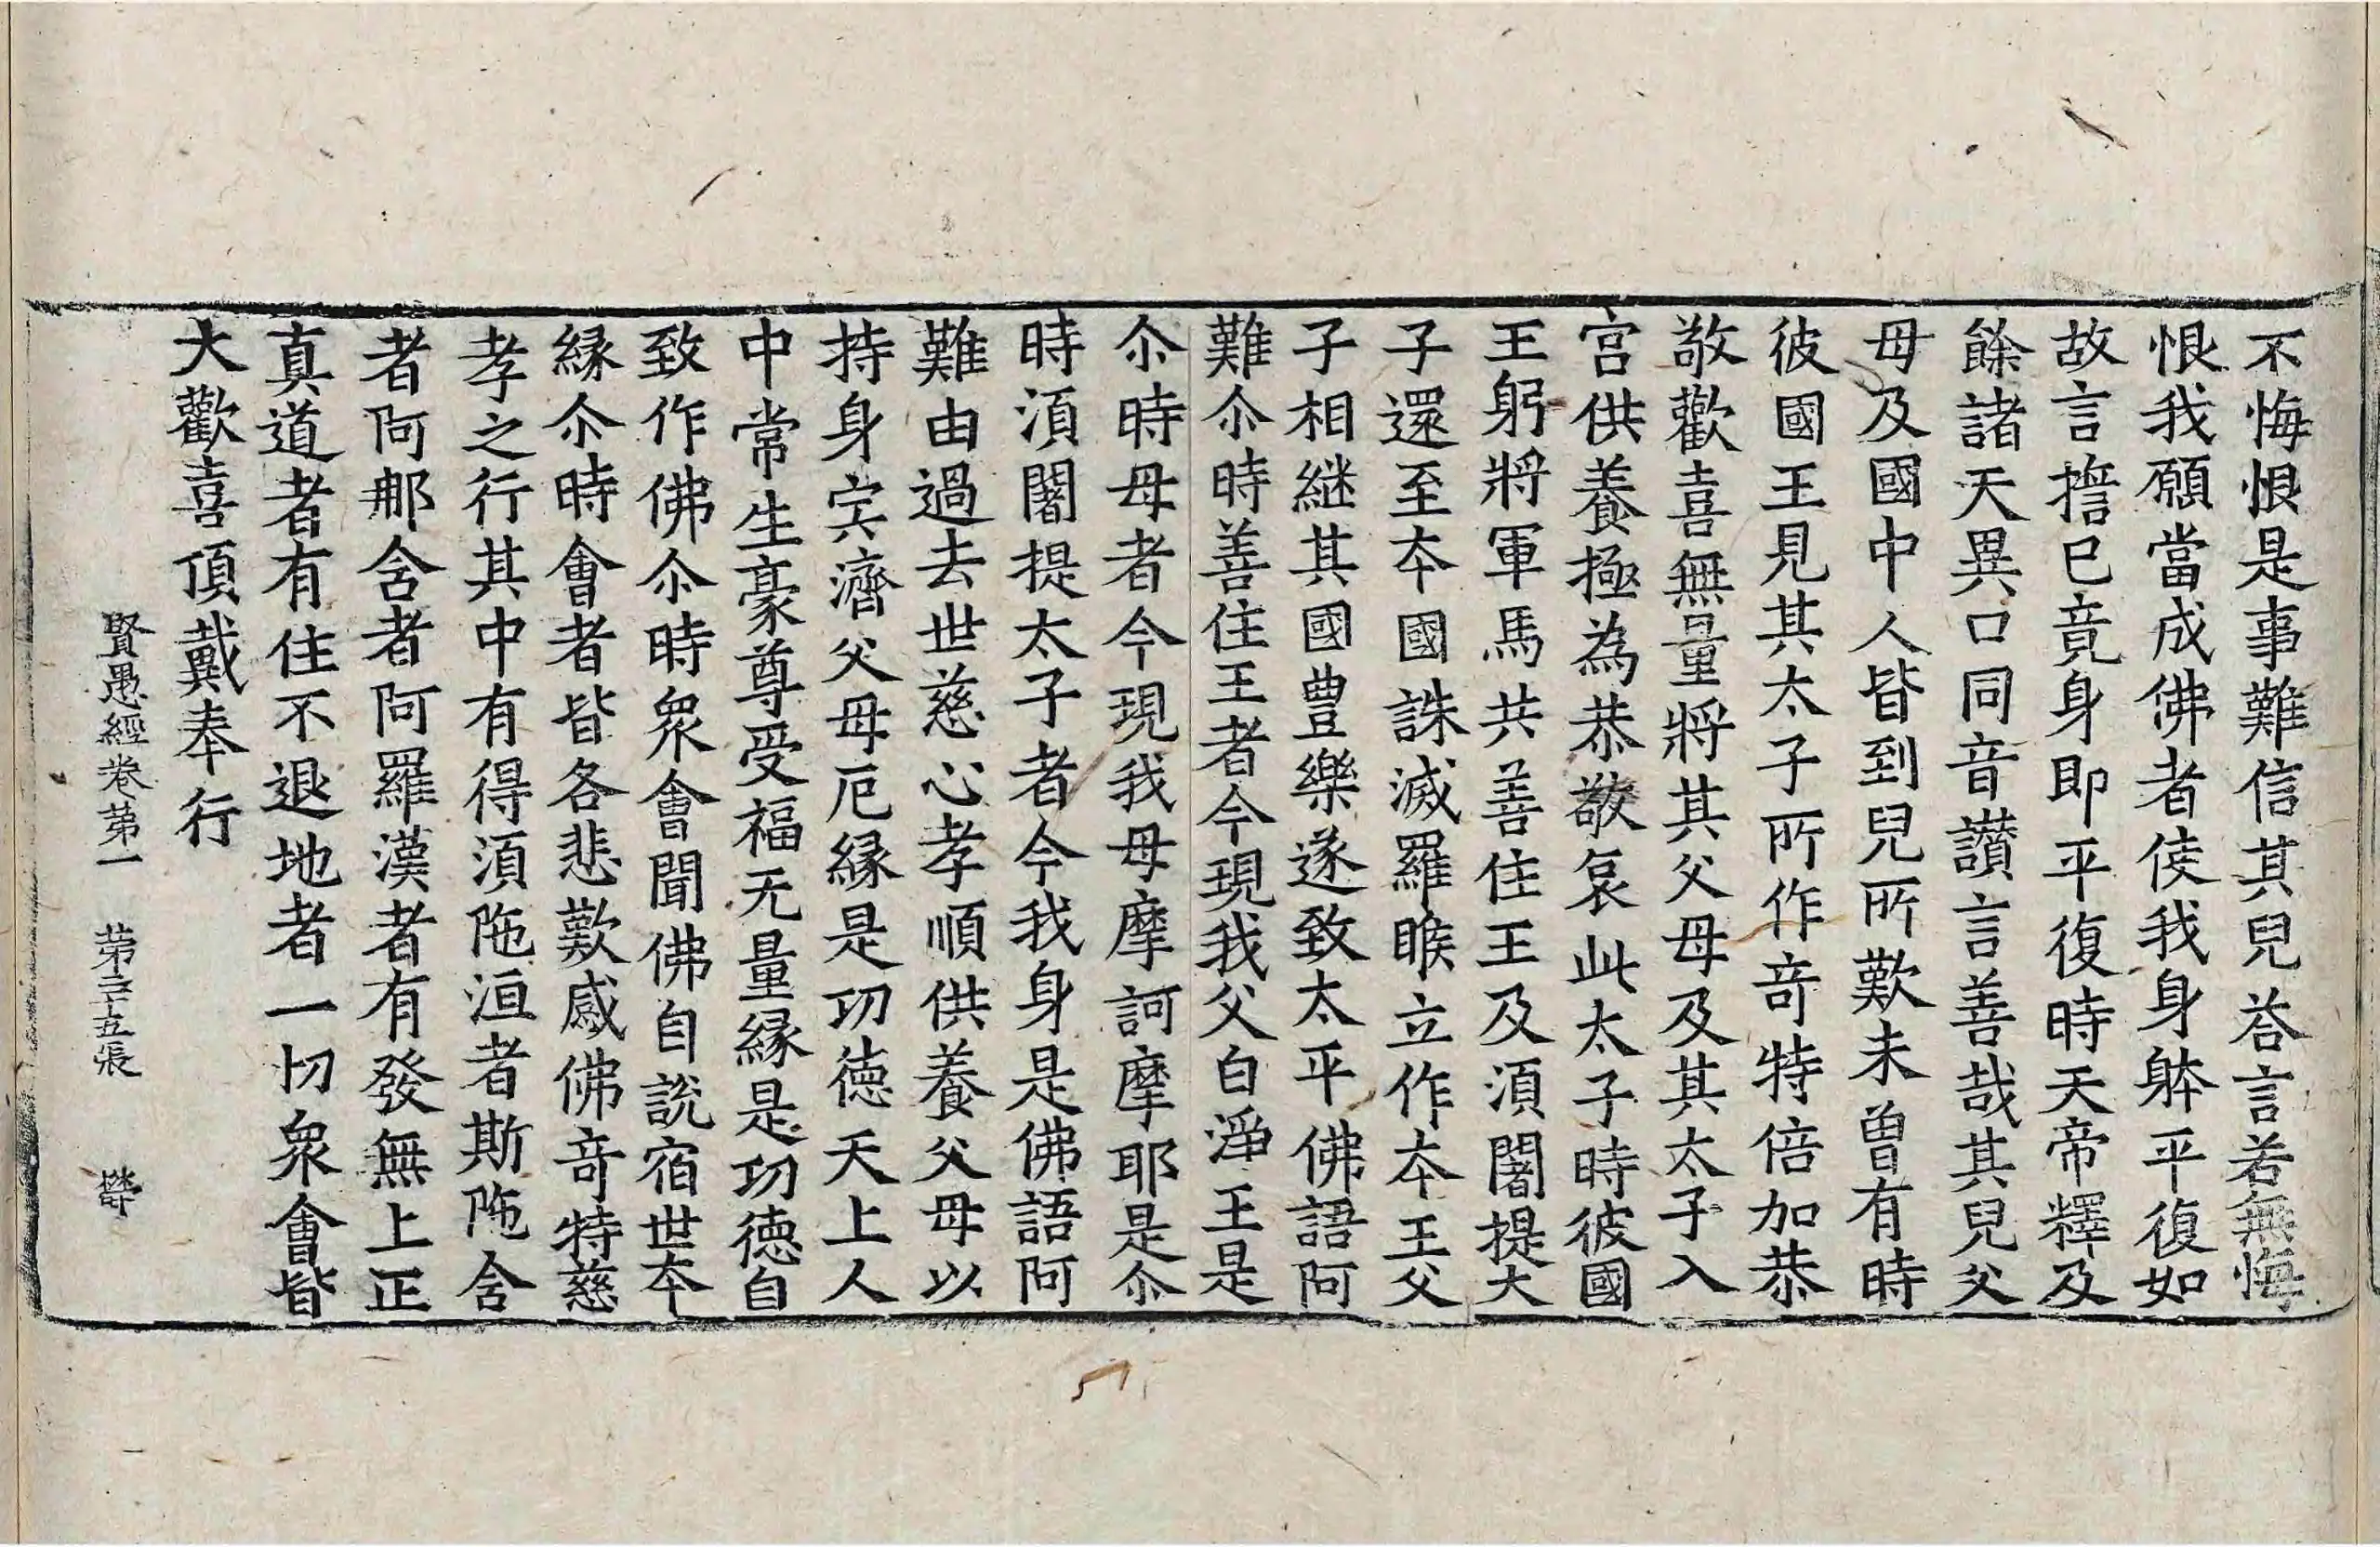 不悔恨是事難信其兒荅言若無悔
恨我願當成佛者使我身躰平復如
故言擔已竟身即平復時天帝釋及
餘諸天異口同音讃言善哉其兒父
母及國中人皆到兒所歎未曾有時
彼國王見其太子所作奇特倍加恭
敬歡喜無量將其父母及其太子入
宮供養極為恭敬哀此太子時彼國
王躬將軍馬共善住王及湏闍提大
子還至夲國誅滅羅睺立作夲王父
子相継其國豊樂遂致太平佛語阿
難尒時善住王者今現我父白淨王是
尒時母者今現我母摩訶摩耶是尒
時湏闍提太子者今我身是佛語阿
難由過去世慈心孝順供養父母以
持身宍濟父母厄縁是功徳天上人
中常生豪尊受福无量縁是功徳自
致作佛尒時衆會聞佛自說宿世夲
縁尒時會者皆各悲歎感佛奇特慈
孝之行其中有得湏陁洹者斯陁含
者阿那含者阿羅漢者有發無上正
真道者有住不退地者一切衆會皆
大歡喜頂戴奉行
賢愚經卷苐一　苐三十五張